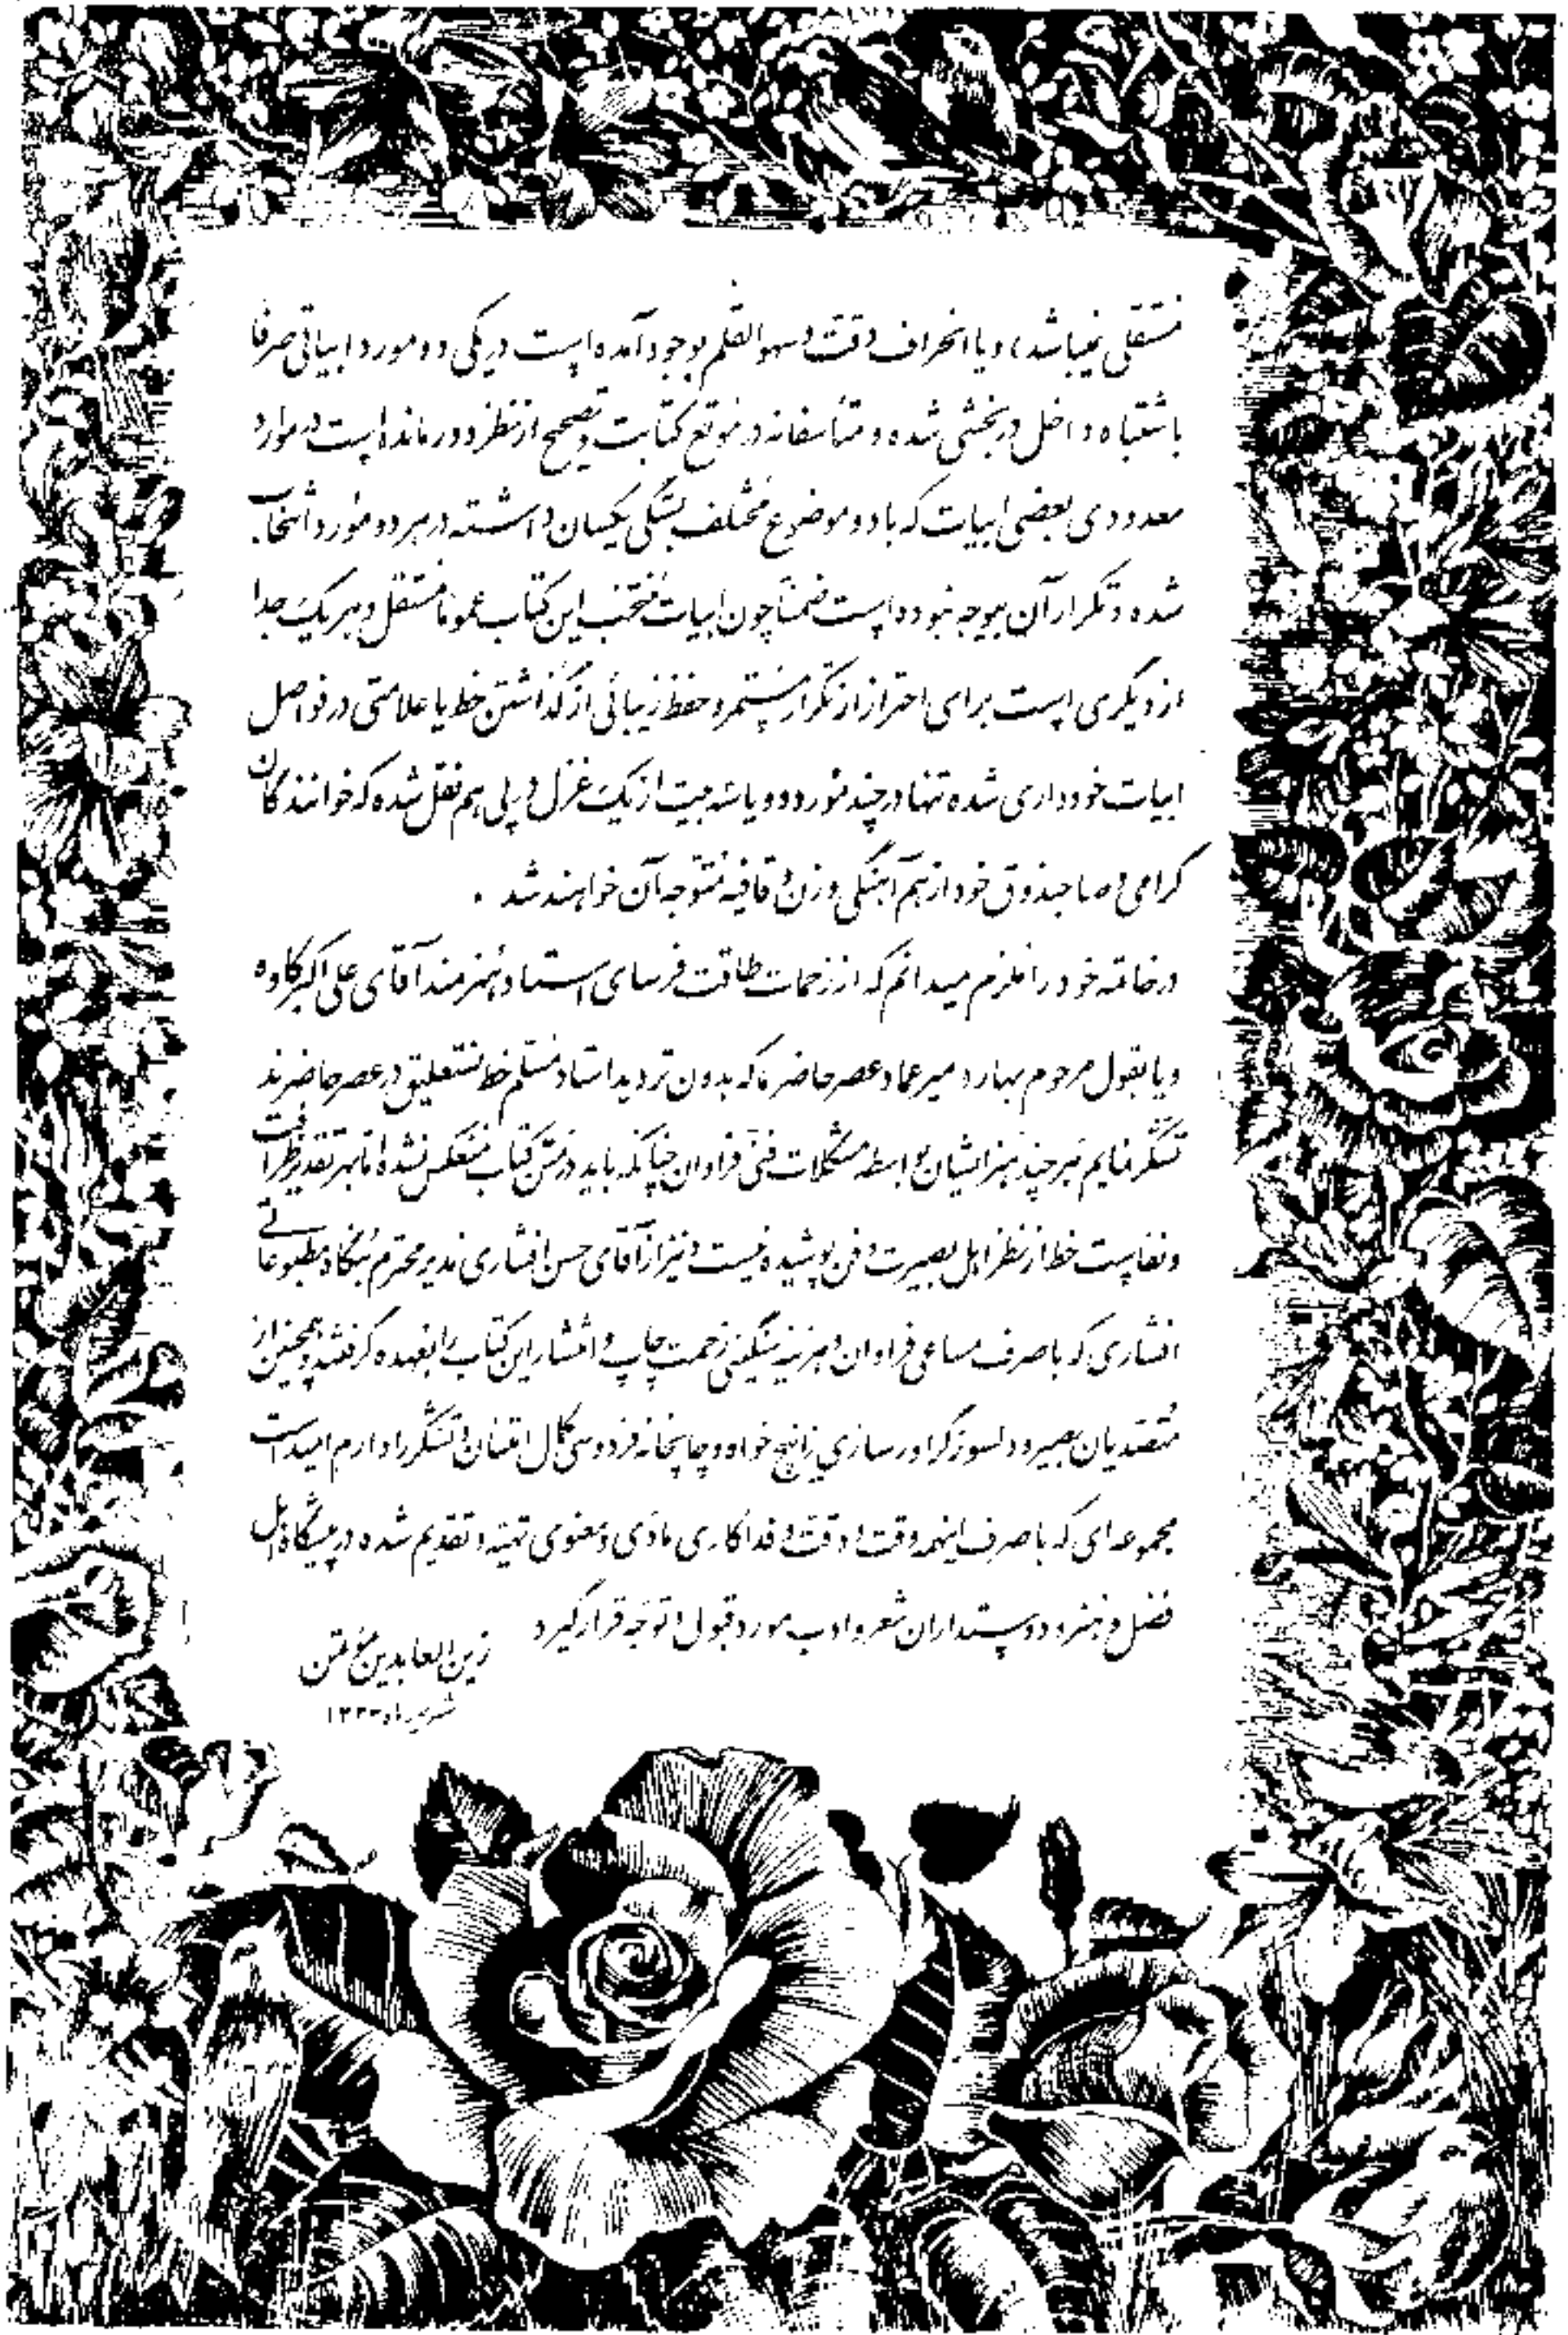 مستقلی نمیباشد، و یا انحراف دقت و سهو القلم بوجود آمده است در یکی دو مورد ابیاتی صرفا
باشتباه داخل در بخشی شده و متأسفانه در موقع کتابت و تصحیح از نظر دور مانده است در موارد
معدودی بعضی ابیات که با دو موضوع مختلف بستگی یکسان داشته در هر دو مورد انتخاب
شده و تکرار آن بیوجه نبوده است ضمناً چون ابیات منتخب این کتاب عموماً مستقل و هر یک جدا
از دیگری است برای احتراز از تکرار مستمر و حفظ زیبائی از گذاشتن خط یا علامتی در فواصل
ابیات خودداری شده تنها در چند مورد دو و یا سه بیت از یک غزل در پی هم نقل شده که خوانندگان
گرامی و صاحبذوق خود از هم آهنگی وزن و قافیه متوجه آن خواهند شد .
در خاتمه خود را ملزم میدانم که از زحمات طاقت فرسای استاد هنرمند آقای علی اکبر کاوه
و یا بقول مرحوم بهار « میر عماد عصر حاضر » که بدون تردید استاد مسلم خط نستعلیق در عصر حاضرند
تشکر نمایم هر چند هنر ایشان بواسطه مشکلات فنی فراوان چنانکه باید در متن کتاب منعکس نشده اما بهر تقدیر ظرافت
و نفاست خط از نظر اهل بصیرت و فن پوشیده نیست و نیز از آقای حسن افشاری مدیر محترم بنگاه مطبوعاتی
افشاری که با صرف مساعی فراوان و هزینه سنگین زحمت چاپ و انتشار این کتاب را بعهده گرفتند و همچنین از
متصدیان بصیر و دلسوز گراورسازی زانیچ خواه و چاپخانه فردوسی کمال امتنان و تشکر را دارم امید است
مجموعه ای که با صرف اینهمه وقت و دقت و فداکاری مادی و معنوی تهیه و تقدیم شده در پیشگاه اهل
فضل و هنر و دوستداران شعر و ادب مورد قبول و توجه قرار گیرد
زین العابدین مؤتمن
شهریور ماه ۱۳۳۳